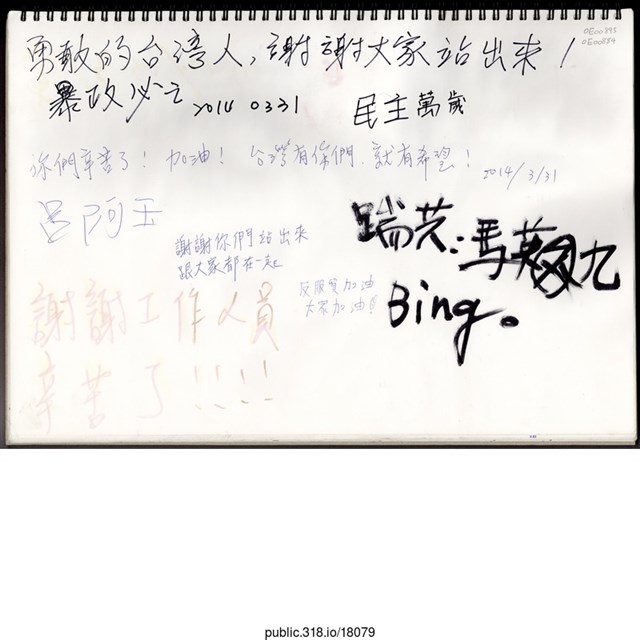 0E00895
0E00884
勇敢的台湾人,謝謝大家站出來!
暴政必亡 2014 0331
民主萬歲
你們辛苦了! 加油! 台灣有你們.就有希望! 2014/3/31
呂阿玉
謝謝你們站出來
跟大家都在一起
瑞芳:馬英九
Bing。
反服貿加油
大家加油!!
謝謝工作人員
辛苦了!!!!
public.318.io/18079